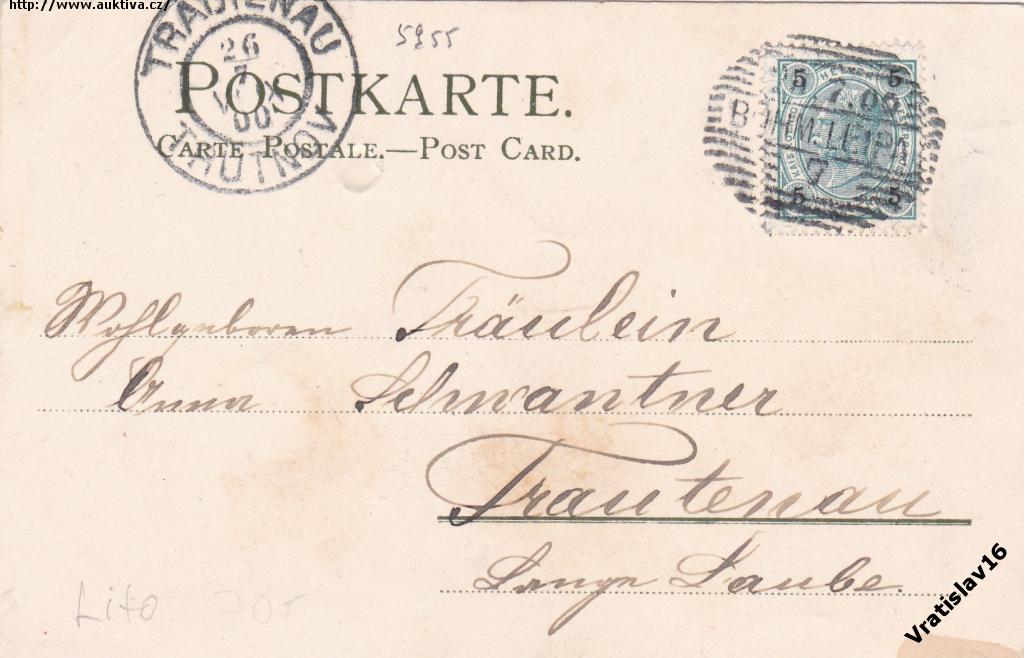 http://www.auktiva.cz/
TRAUTENAU
26
7
00
TRUTNOV
5955
POSTKARTE.
CARTE POSTALE.—POST CARD.
5 5
BÖHM. LEIPA
7
5 5
Wohlgeboren Fräulein
Anna Schwantner
Trautenau
Lange Laube.
Lito 70,-
Vratislav16